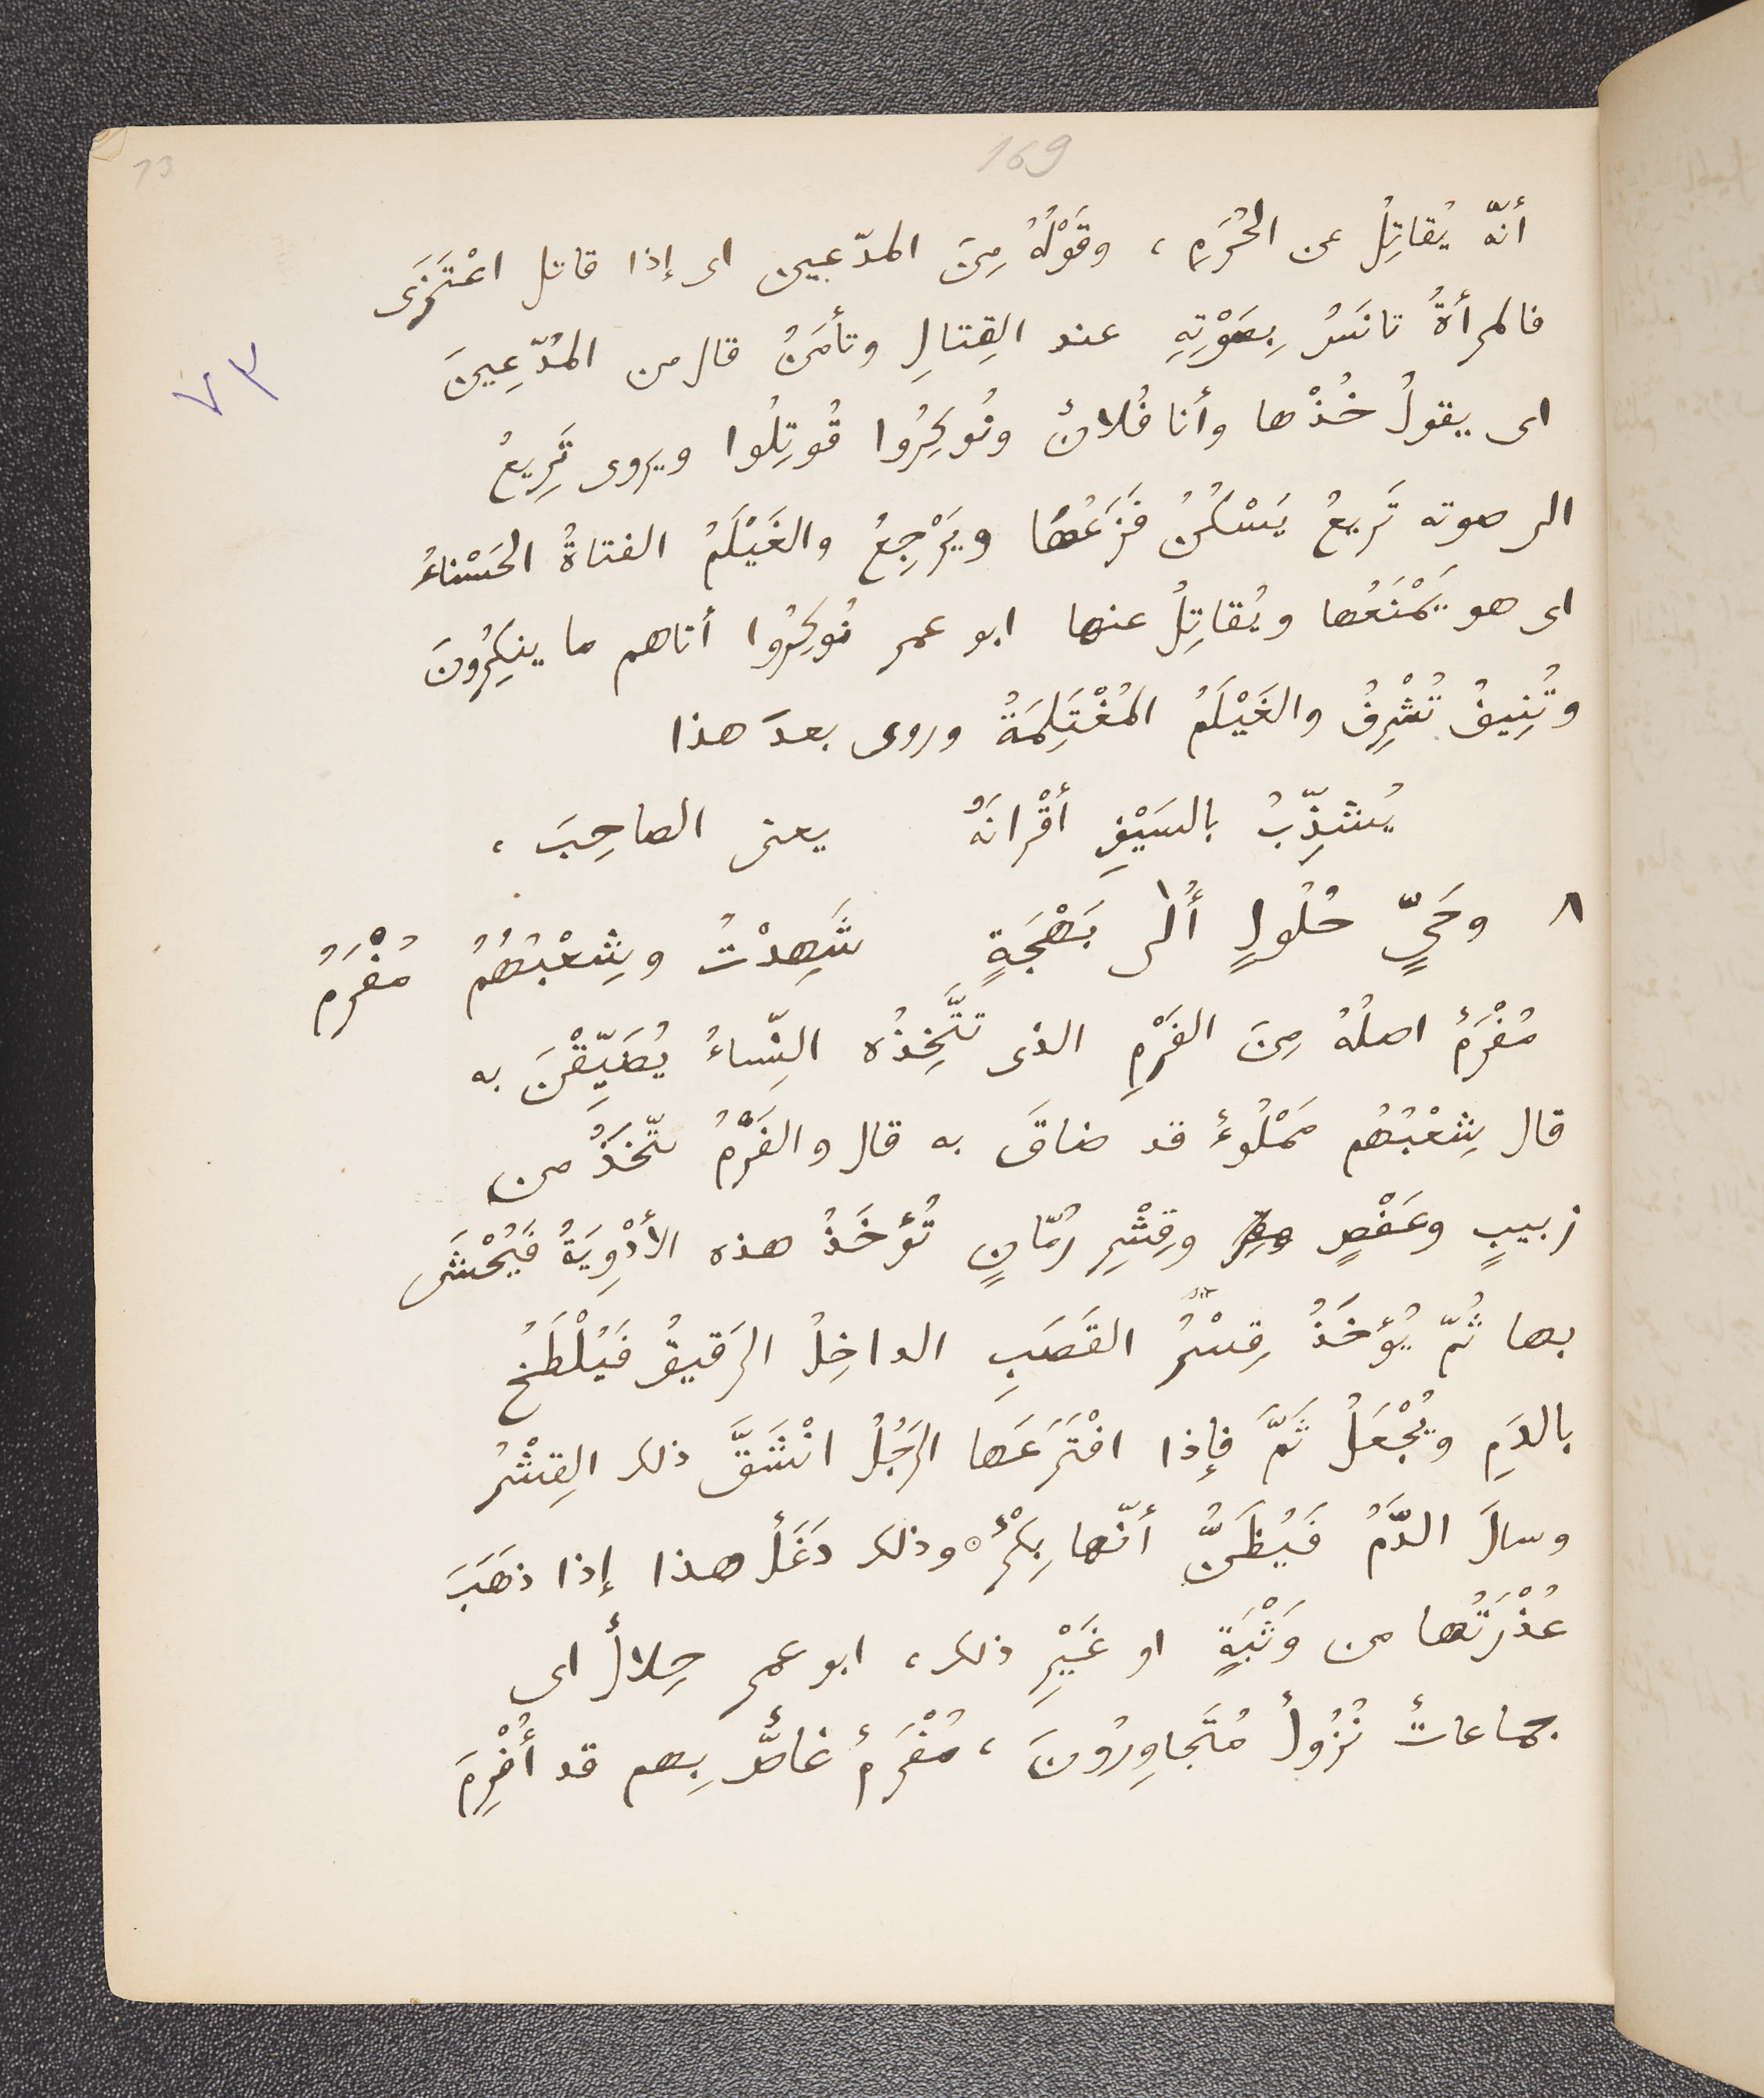 169
73
أنّه يُقاتِلُ عن الحُرَمِ ، وقَوْلُهُ مِنَ المدّعين اى إذا قاتل اعْتَزَى
٧٣
فالمرأةُ تانَسُ بِصَوْتِهِ عند القِتالِ وتأمَنُ قال من المُدّعِينَ
اى يقولُ خُذْها وأنا فُلانٌ ونُوكِرُوا قُوتِلُوا ويروى تَرِيعُ
الى صوته تَريعُ يَسْكُنُ فَزَعُها ويَرْجِعُ والغَيْلَمُ الفتاةُ الحَسْناءُ
اى هو يَمْنَعُها ويُقاتِلُ عنها ابو عمرو نُوكِرُوا أتاهم ما ينكِرُونَ
وتُنِيفُ تُشْرِفُ والغَيْلَمُ المُغْتَلِمَةُ وروى بعدَ هذا
يُشذِّبُ بالسَيْفِ أقْرانَهُ يعنى الصاحِبَ ،
٨ وحَيٍّ حُلُولٍ أُلى بَهْجَةٍ شَهِدْتُ وشِعْبُهُمُ مُفْرَمُ
مُفْرَمٌ اصلُهُ مِنَ الفَرْمِ الذى تتَّخِذُه النِّساءُ يُضَيِّقْنَ به
قال شِعْبُهُم مَمْلُوءٌ قد ضاقَ به قال والفَرْمُ يتّخَذُ من
زبيبٍ وعَفْصٍ وقِشْرِ رُمّانٍ تُؤخَذُ هذه الأدْوِيَةُ فيُحْشَى
بها ثُمّ يُؤخَذُ قِشْرُ القَصَبِ الداخِلُ الرَقيقُ فَيُلْطَخُ
بالدَمِ ويُجْعَلُ ثَمَّ فإذا افْتَرَعَها الرَجُلُ انْشَقَّ ذلك القِشْرُ
وسالَ الدَّمُ فَيُظَنُّ أنّها بِكْرٌ وذلك دَغَلٌ هذا إذا ذهَبَ
عُذْرَتُها من وَثْبَةٍ او غَيْرِ ذلك ، ابو عمرو حِلالٌ اى
جماعاتٌ نُزُولٌ مُتَجاوِرُونَ ، مُفْرَمٌ غاصٌّ بِهم قد أُفْرِمَ